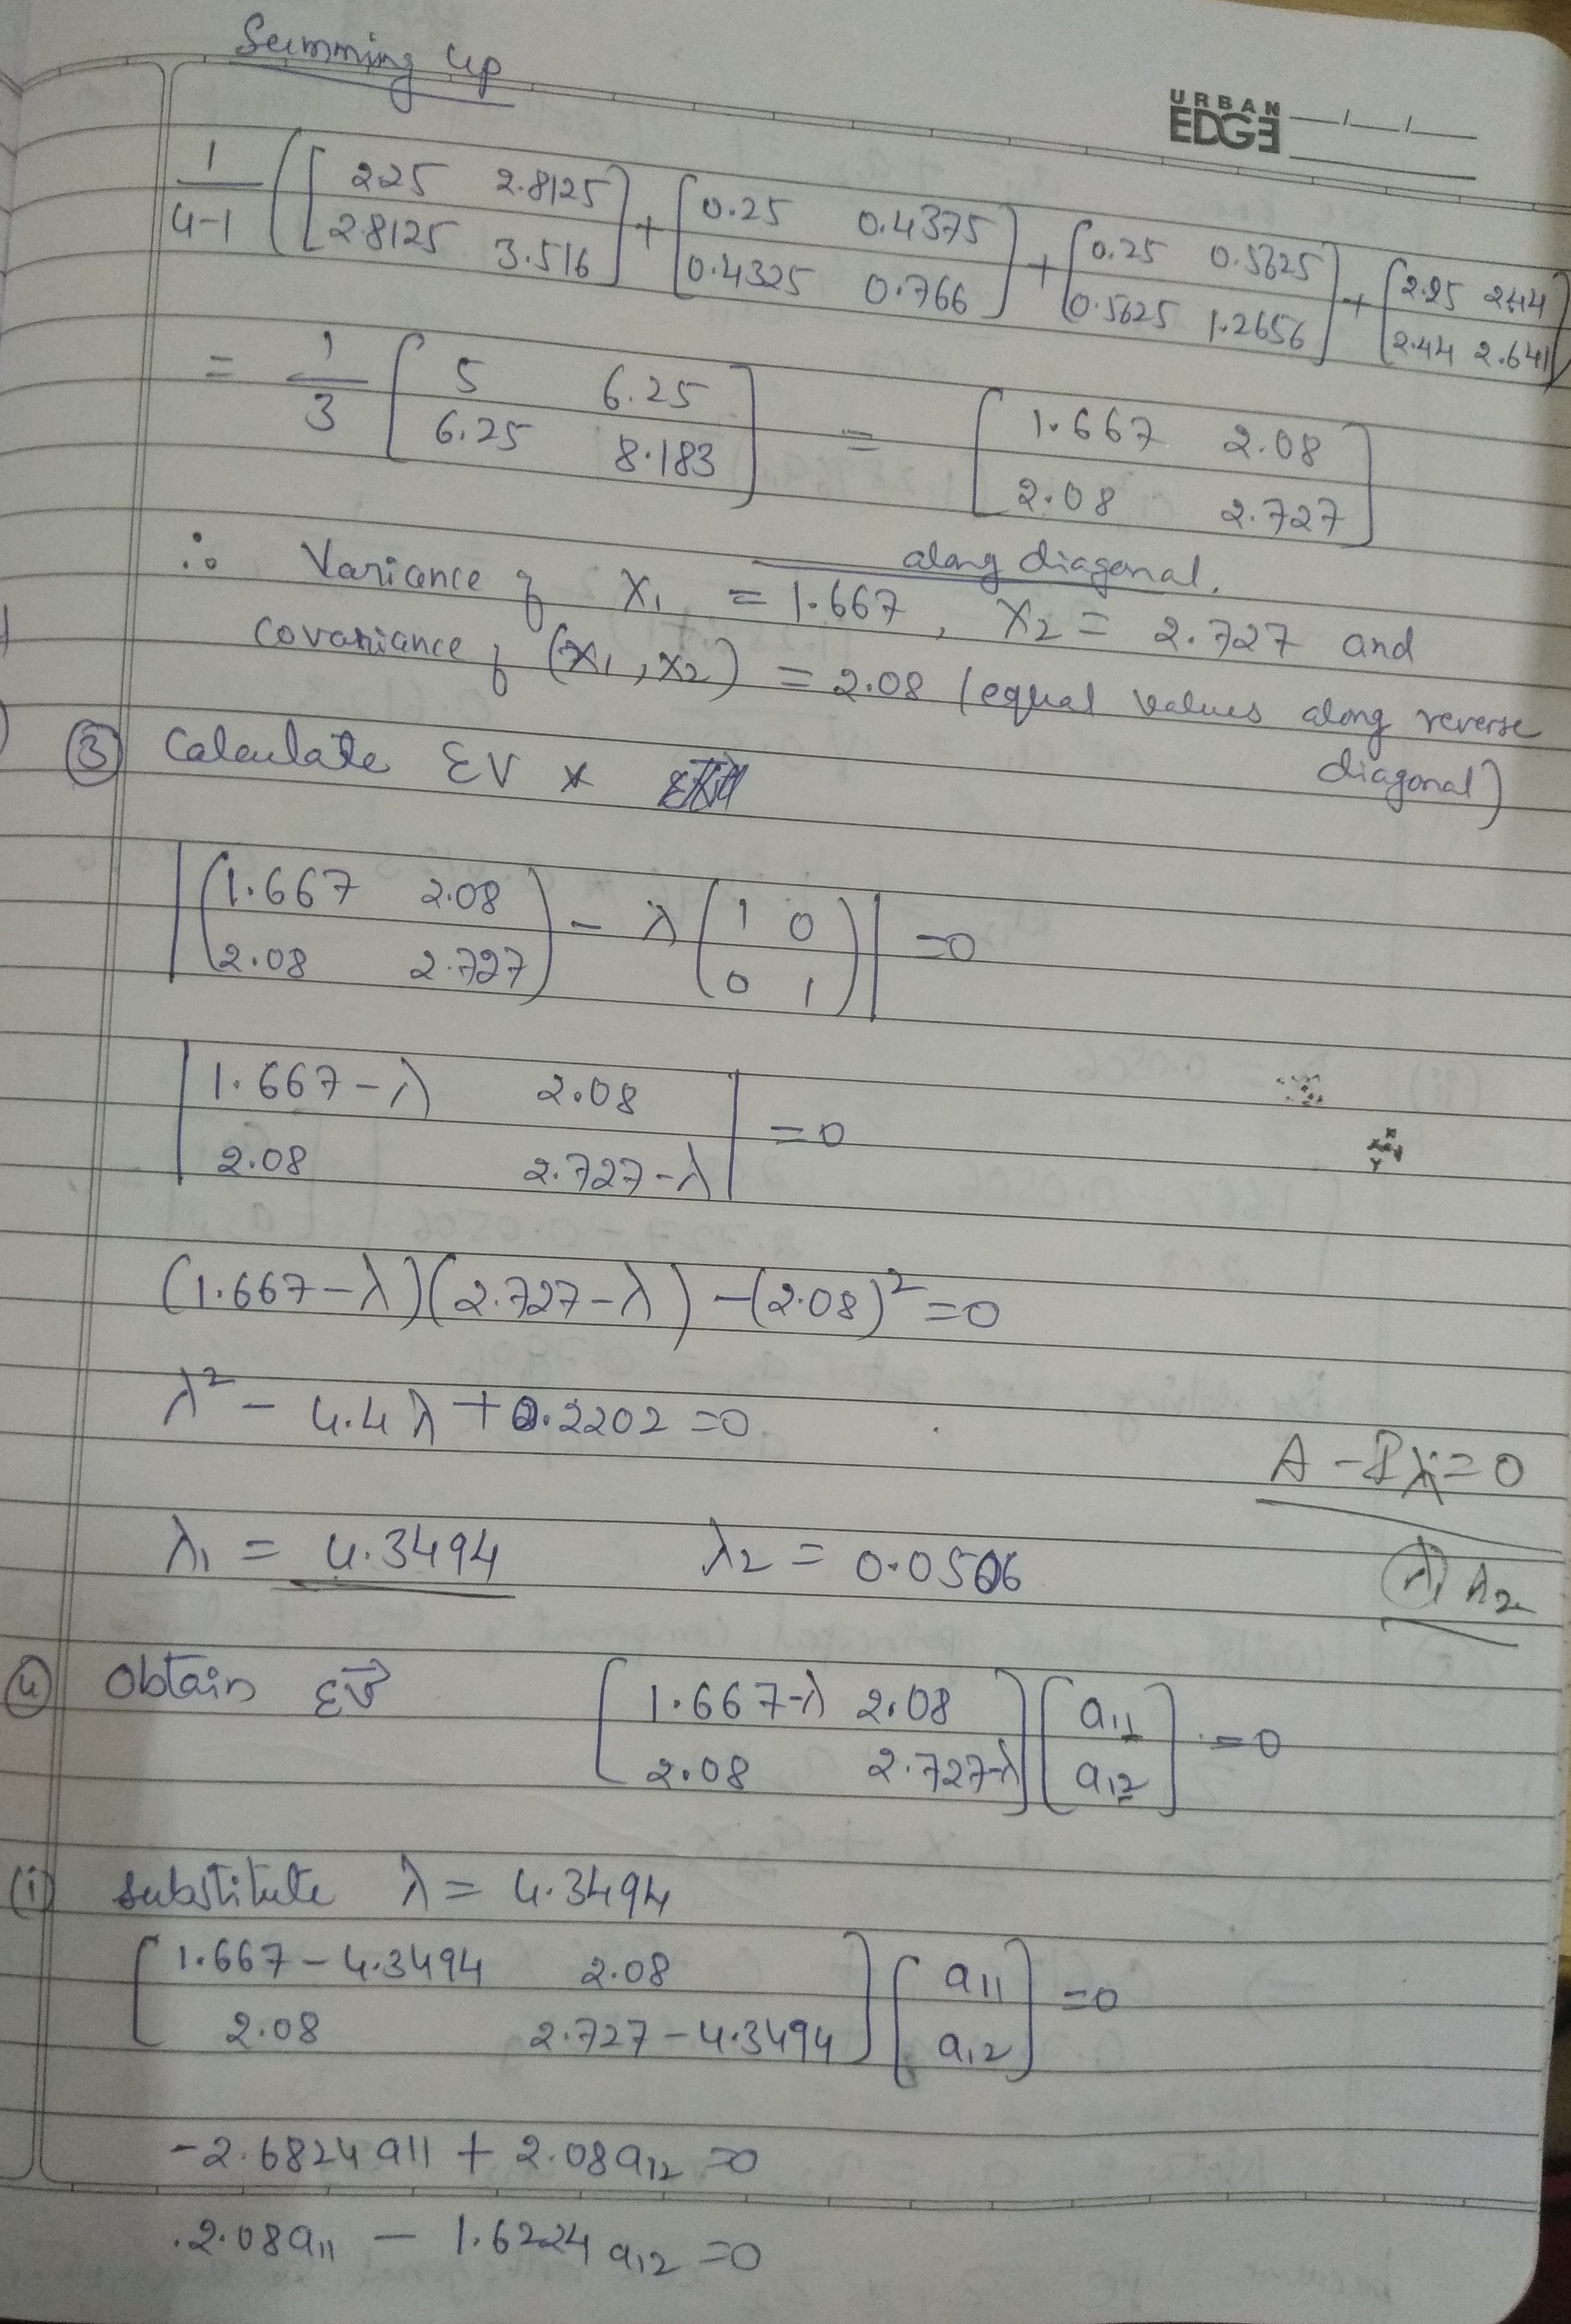 Summing up
URBAN EDGE __/__/__
1/(4-1) ( [2.25 2.8125; 2.8125 3.516] + [0.25 0.4375; 0.4325 0.766] + [0.25 0.5625; 0.5625 1.2656] + [2.25 2.44; 2.44 2.641] )
= 1/3 [5 6.25; 6.25 8.183] = [1.667 2.08; 2.08 2.727]
along diagonal.
∴ Variance of X₁ = 1.667, X₂ = 2.727 and
covariance of (X₁, X₂) = 2.08 (equal values along reverse
diagonal)
③ Calculate EV *
| (1.667 2.08; 2.08 2.727) - λ (1 0; 0 1) | = 0
| 1.667-λ 2.08; 2.08 2.727-λ | = 0
(1.667-λ)(2.727-λ) - (2.08)² = 0
λ² - 4.4λ + 0.2202 = 0
A - Iλ = 0
λ₁ = 4.3494 λ₂ = 0.0506
λ₁ λ₂
④ Obtain EV→ [1.667-λ 2.08; 2.08 2.727-λ] [a₁₁; a₁₂] = 0
(i) substitute λ = 4.3494
[1.667-4.3494 2.08; 2.08 2.727-4.3494] [a₁₁; a₁₂] = 0
-2.6824 a₁₁ + 2.08 a₁₂ = 0
2.08 a₁₁ - 1.6224 a₁₂ = 0